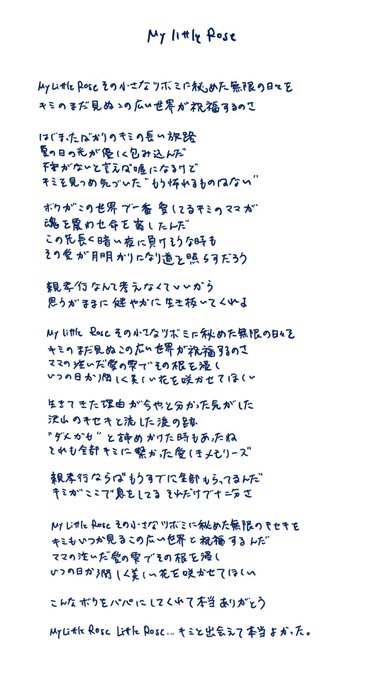 My little Rose
My Little Rose その小さなツボミに秘めた無限の日々を
キミのまだ見ぬこの広い世界が祝福するのさ
はじまったばかりのキミの長い旅路
夏の日の光が優しく包み込んだ
不安がないと言えば嘘になるけど
キミを見つめ気づいた"もう怖れるものはない"
ボクがこの世界で一番愛してるキミのママが
魂を震わせ命を宿したんだ
この先長く暗い夜に負けそうな時も
その愛が月明かりになり道を照らすだろう
親孝行なんて考えなくていいから
思うがままに健やかに生き抜いてくれよ
My little Rose その小さなツボミに秘めた無限の日々を
キミのまだ見ぬこの広い世界が祝福するのさ
ママの注いだ愛の雫でその根を濡し
いつの日か潤しく美しい花を咲かせてほしい
生きてきた理由が今やっと分かった気がした
沢山のキセキと流した涙の跡
"ダメかも"と諦めかけた時もあったね
それも全部キミに繋がった愛しきメモリーズ
親孝行ならばもうすでに全部もらってるんだ
キミがここで息をしてる それだけで十二分さ
My Little Rose その小さなツボミに秘めた無限のキセキを
キミもいつか見るこの広い世界と祝福するんだ
ママの注いだ愛の雫でその根を濡し
いつの日か潤しく美しい花を咲かせてほしい
こんなボクをパパにしてくれて本当ありがとう
My Little Rose Little Rose... キミと出会えて本当よかった。